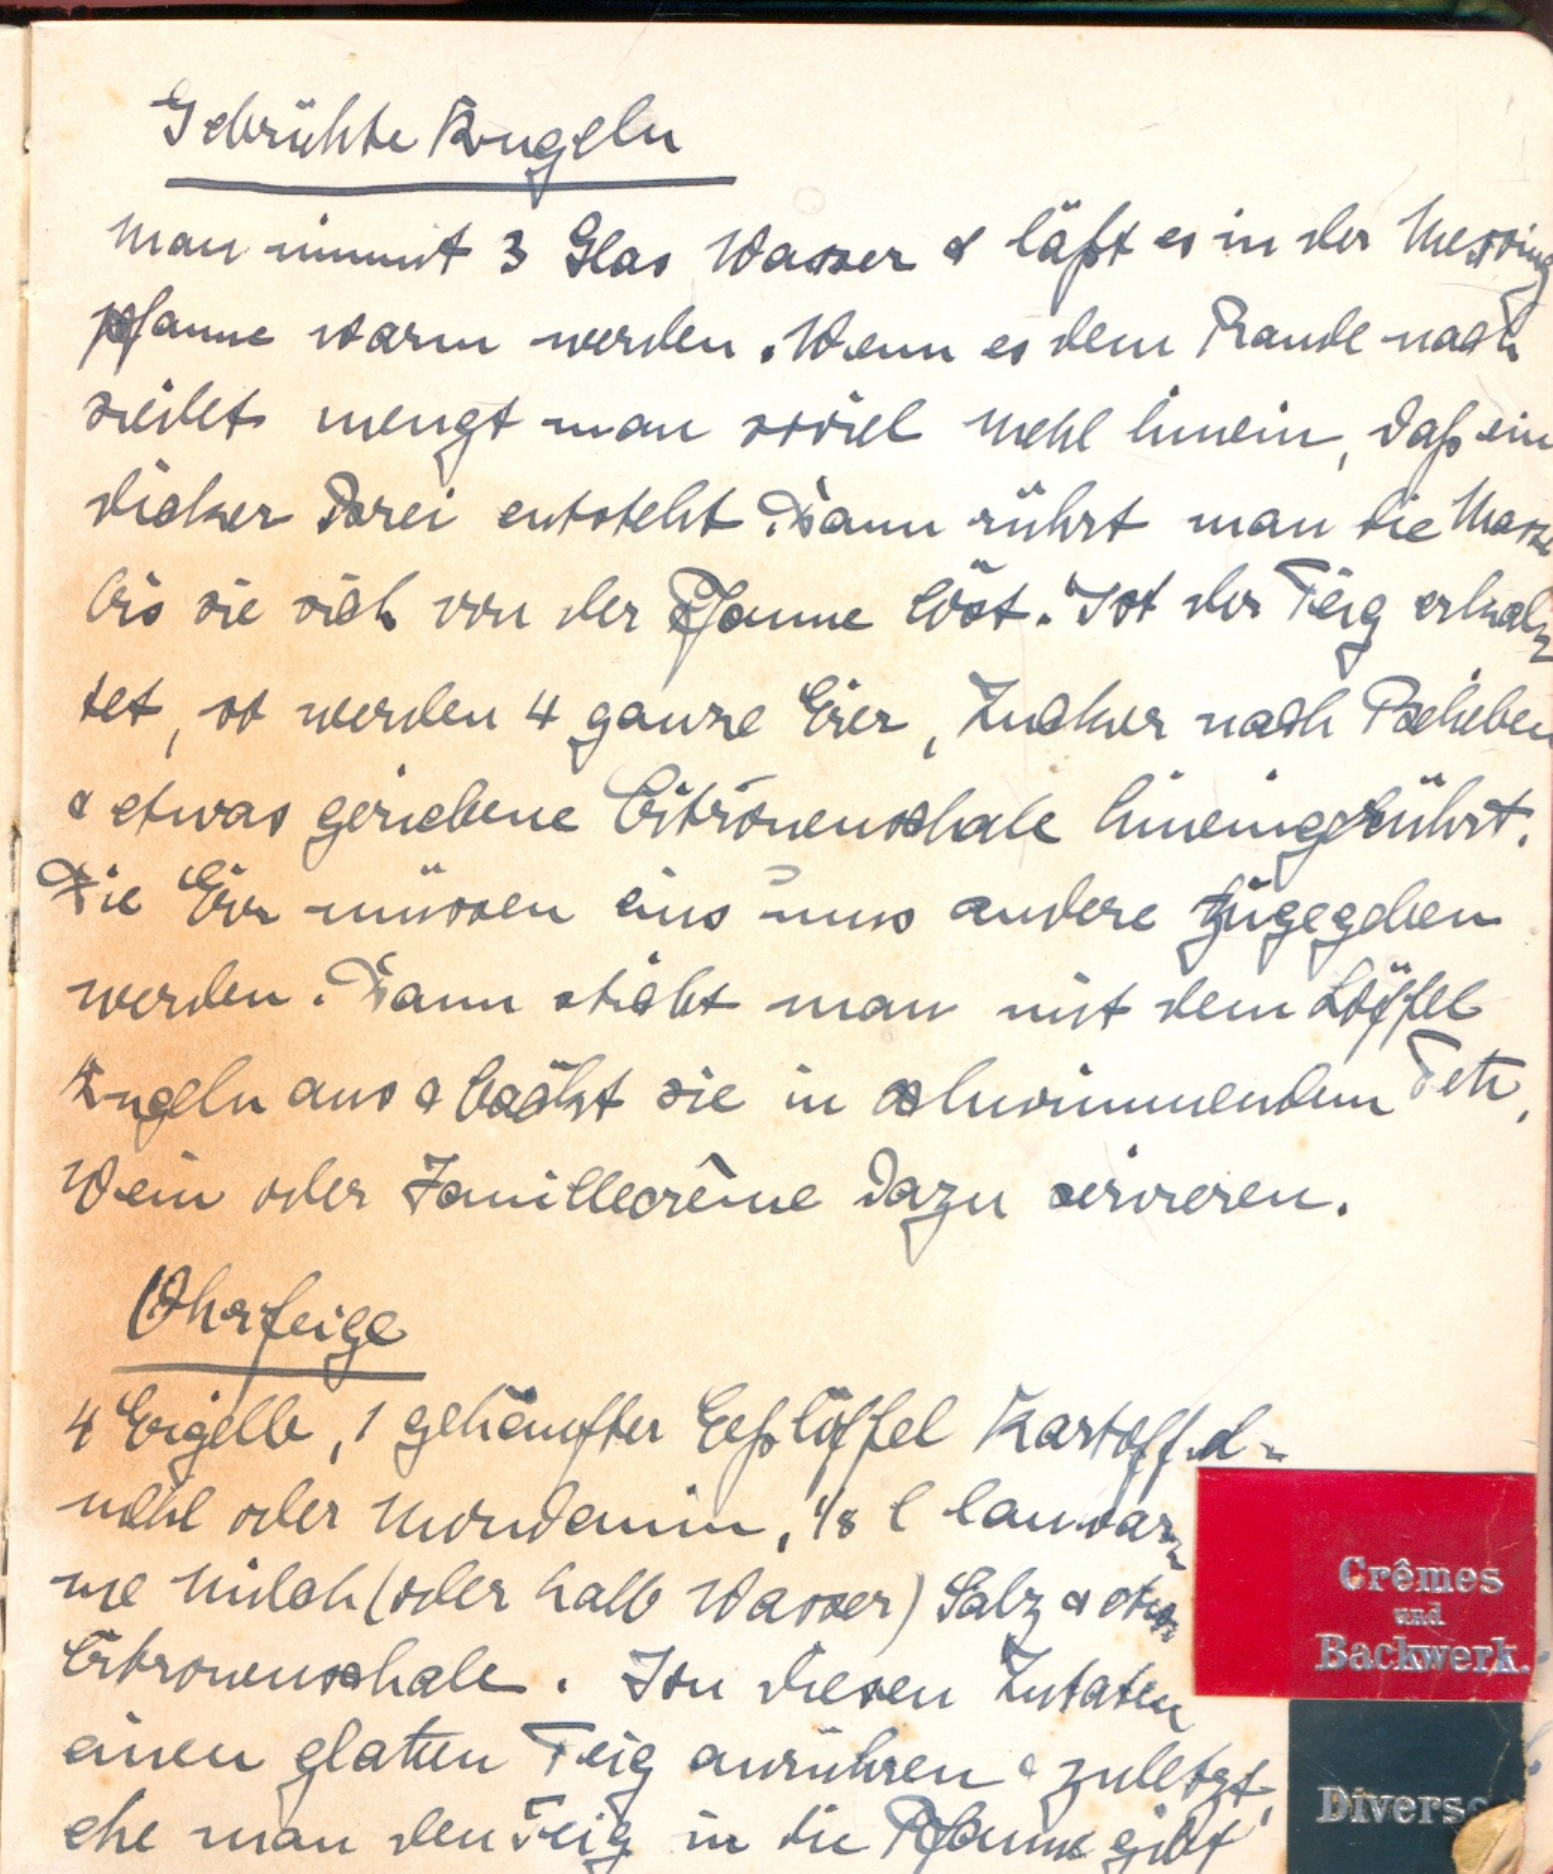 Gebrühte Kugeln
Man nimmt 3 Glas Wasser & läßt es in der Messing
pfanne warm werden. Wenn es dem Rande nach
siedet mengt man soviel Mehl hinein, daß ein
dicker Brei entsteht. Dann rührt man die Masse
bis sie sich von der Pfanne löst. Ist der Teig erkal-
tet, so werden 4 ganze Eier, Zucker nach Belieben
& etwas geriebene Citronenschale hineingerührt.
Die Eier müssen eins ums andere zugegeben
werden. Dann sticht man mit dem Löffel
Kugeln aus & bäckt sie in schwimmendem Fett,
Wein oder Vanillecrême dazu servieren.
Ohrfeige
4 Eigelb, 1 gehäufter Eßlöffel Kartoffel-
mehl oder Mondamin, 1/8 l lauwar-
me Milch (oder halb Wasser) Salz & etwas
Citronenschale. Von diesen Zutaten
einen glatten Teig anrühren & zuletzt,
ehe man den Teig in die Pfanne gibt
Crêmes
und
Backwerk.
Diverse